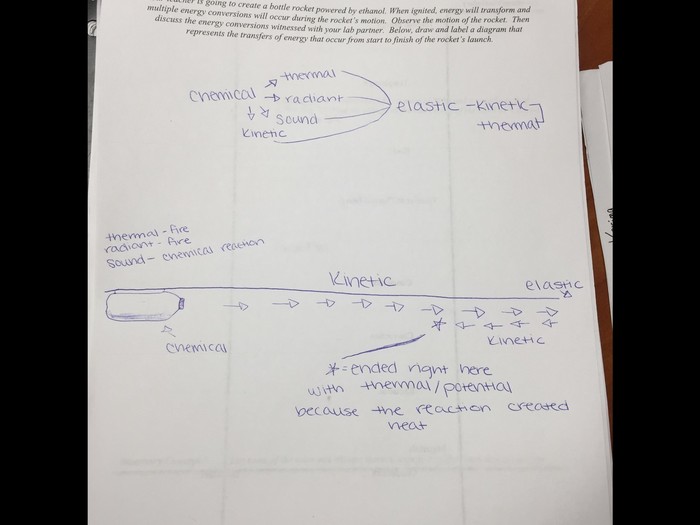 is going to create a bottle rocket powered by ethanol. When ignited, energy will transform and
multiple energy conversions will occur during the rocket's motion. Observe the motion of the rocket. Then
discuss the energy conversions witnessed with your lab partner. Below, draw and label a diagram that
represents the transfers of energy that occur from start to finish of the rocket's launch.
thermal
chemical radiant elastic - Kinetic
sound thermal
Kinetic
thermal - fire
radiant - fire
sound - chemical reaction
Kinetic
elastic
chemical
Kinetic
* = ended right here
with thermal/potential
because the reaction created
heat